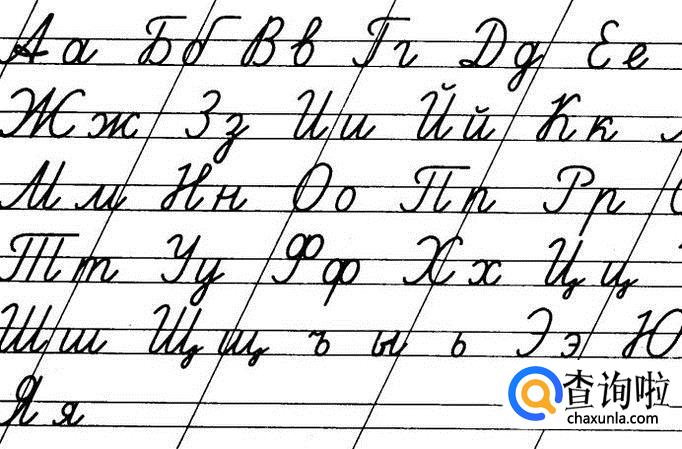 Аа Бб Вв Гг Дд Ее
Жж Зз Ии Йй Кк
Мм Нн Оо Пп Рр
Тт Уу Фф Хх Цц
Шш Щщ ъ ы ь Ээ Ю
Яя
查询啦
chaxunla.com